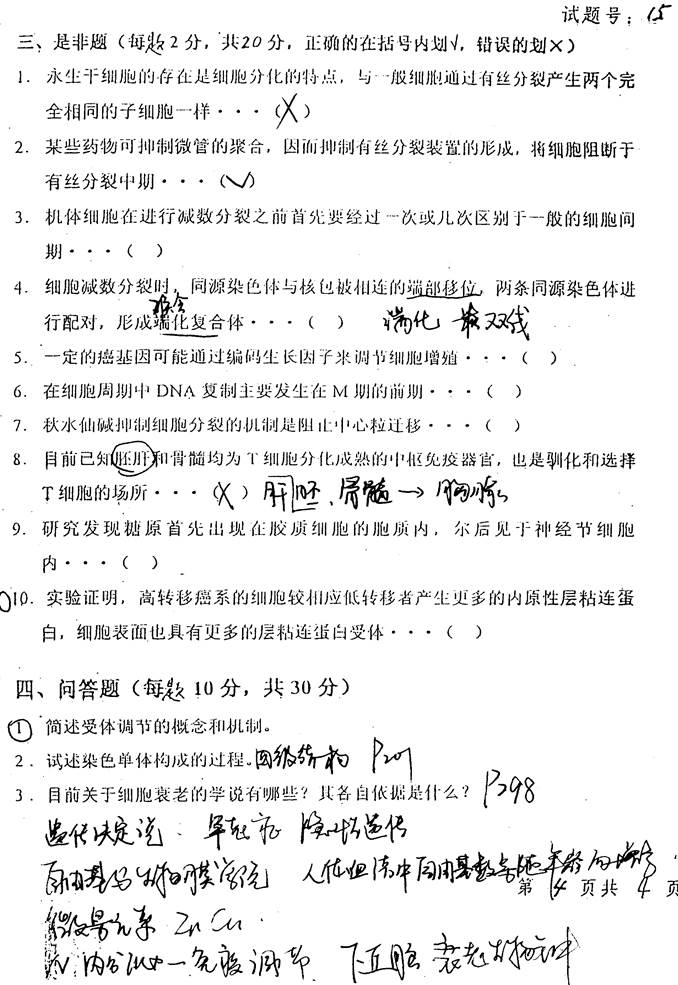 试题号：15
三、是非题（每题2分，共20分，正确的在括号内划√，错误的划×）
1．永生干细胞的存在是细胞分化的特点，与一般细胞通过有丝分裂产生两个完
全相同的子细胞一样···（X）
2．某些药物可抑制微管的聚合，因而抑制有丝分裂装置的形成，将细胞阻断于
有丝分裂中期···（√）
3．机体细胞在进行减数分裂之前首先要经过一次或几次区别于一般的细胞间
期···（ ）
4．细胞减数分裂时，同源染色体与核包被相连的端部移位，两条同源染色体进
行配对，形成端化复合体···（ ） 端化
5．一定的癌基因可能通过编码生长因子来调节细胞增殖···（ ）
6．在细胞周期中DNA复制主要发生在M期的前期···（ ）
7．秋水仙碱抑制细胞分裂的机制是阻止中心粒迁移···（ ）
8．目前已知胚肝和骨髓均为T细胞分化成熟的中枢免疫器官，也是驯化和选择
T细胞的场所···（X） 肝胚、骨髓→胸腺
9．研究发现糖原首先出现在胶质细胞的胞质内，尔后见于神经节细胞
内···（ ）
10．实验证明，高转移癌系的细胞较相应低转移者产生更多的内原性层粘连蛋
白，细胞表面也具有更多的层粘连蛋白受体···（ ）
四、问答题（每题10分，共30分）
1 简述受体调节的概念和机制。
2．试述染色单体构成的过程。四级结构 P201
3．目前关于细胞衰老的学说有哪些？其各自依据是什么？P298
遗传决定说： 早老症 遗传
自由基
第 4 页共 4 页
Zn Cu
内分泌—免疫调节 下丘脑 衰老